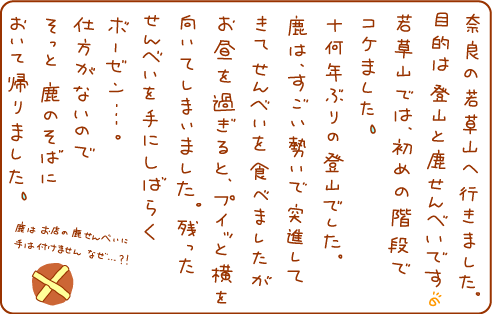 奈良の若草山へ行きました。
目的は登山と鹿せんべいです
若草山では、初めの階段で
コケました。
十何年ぶりの登山でした。
鹿は、すごい勢いで突進して
きてせんべいを食べましたが
お昼を過ぎると、プイッと横を
向いてしまいました。残った
せんべいを手にしばらく
ボーゼン…。
仕方がないので
そっと鹿のそばに
おいて帰りました。
鹿は お店の鹿せんべいに
手は付けません なぜ…?!